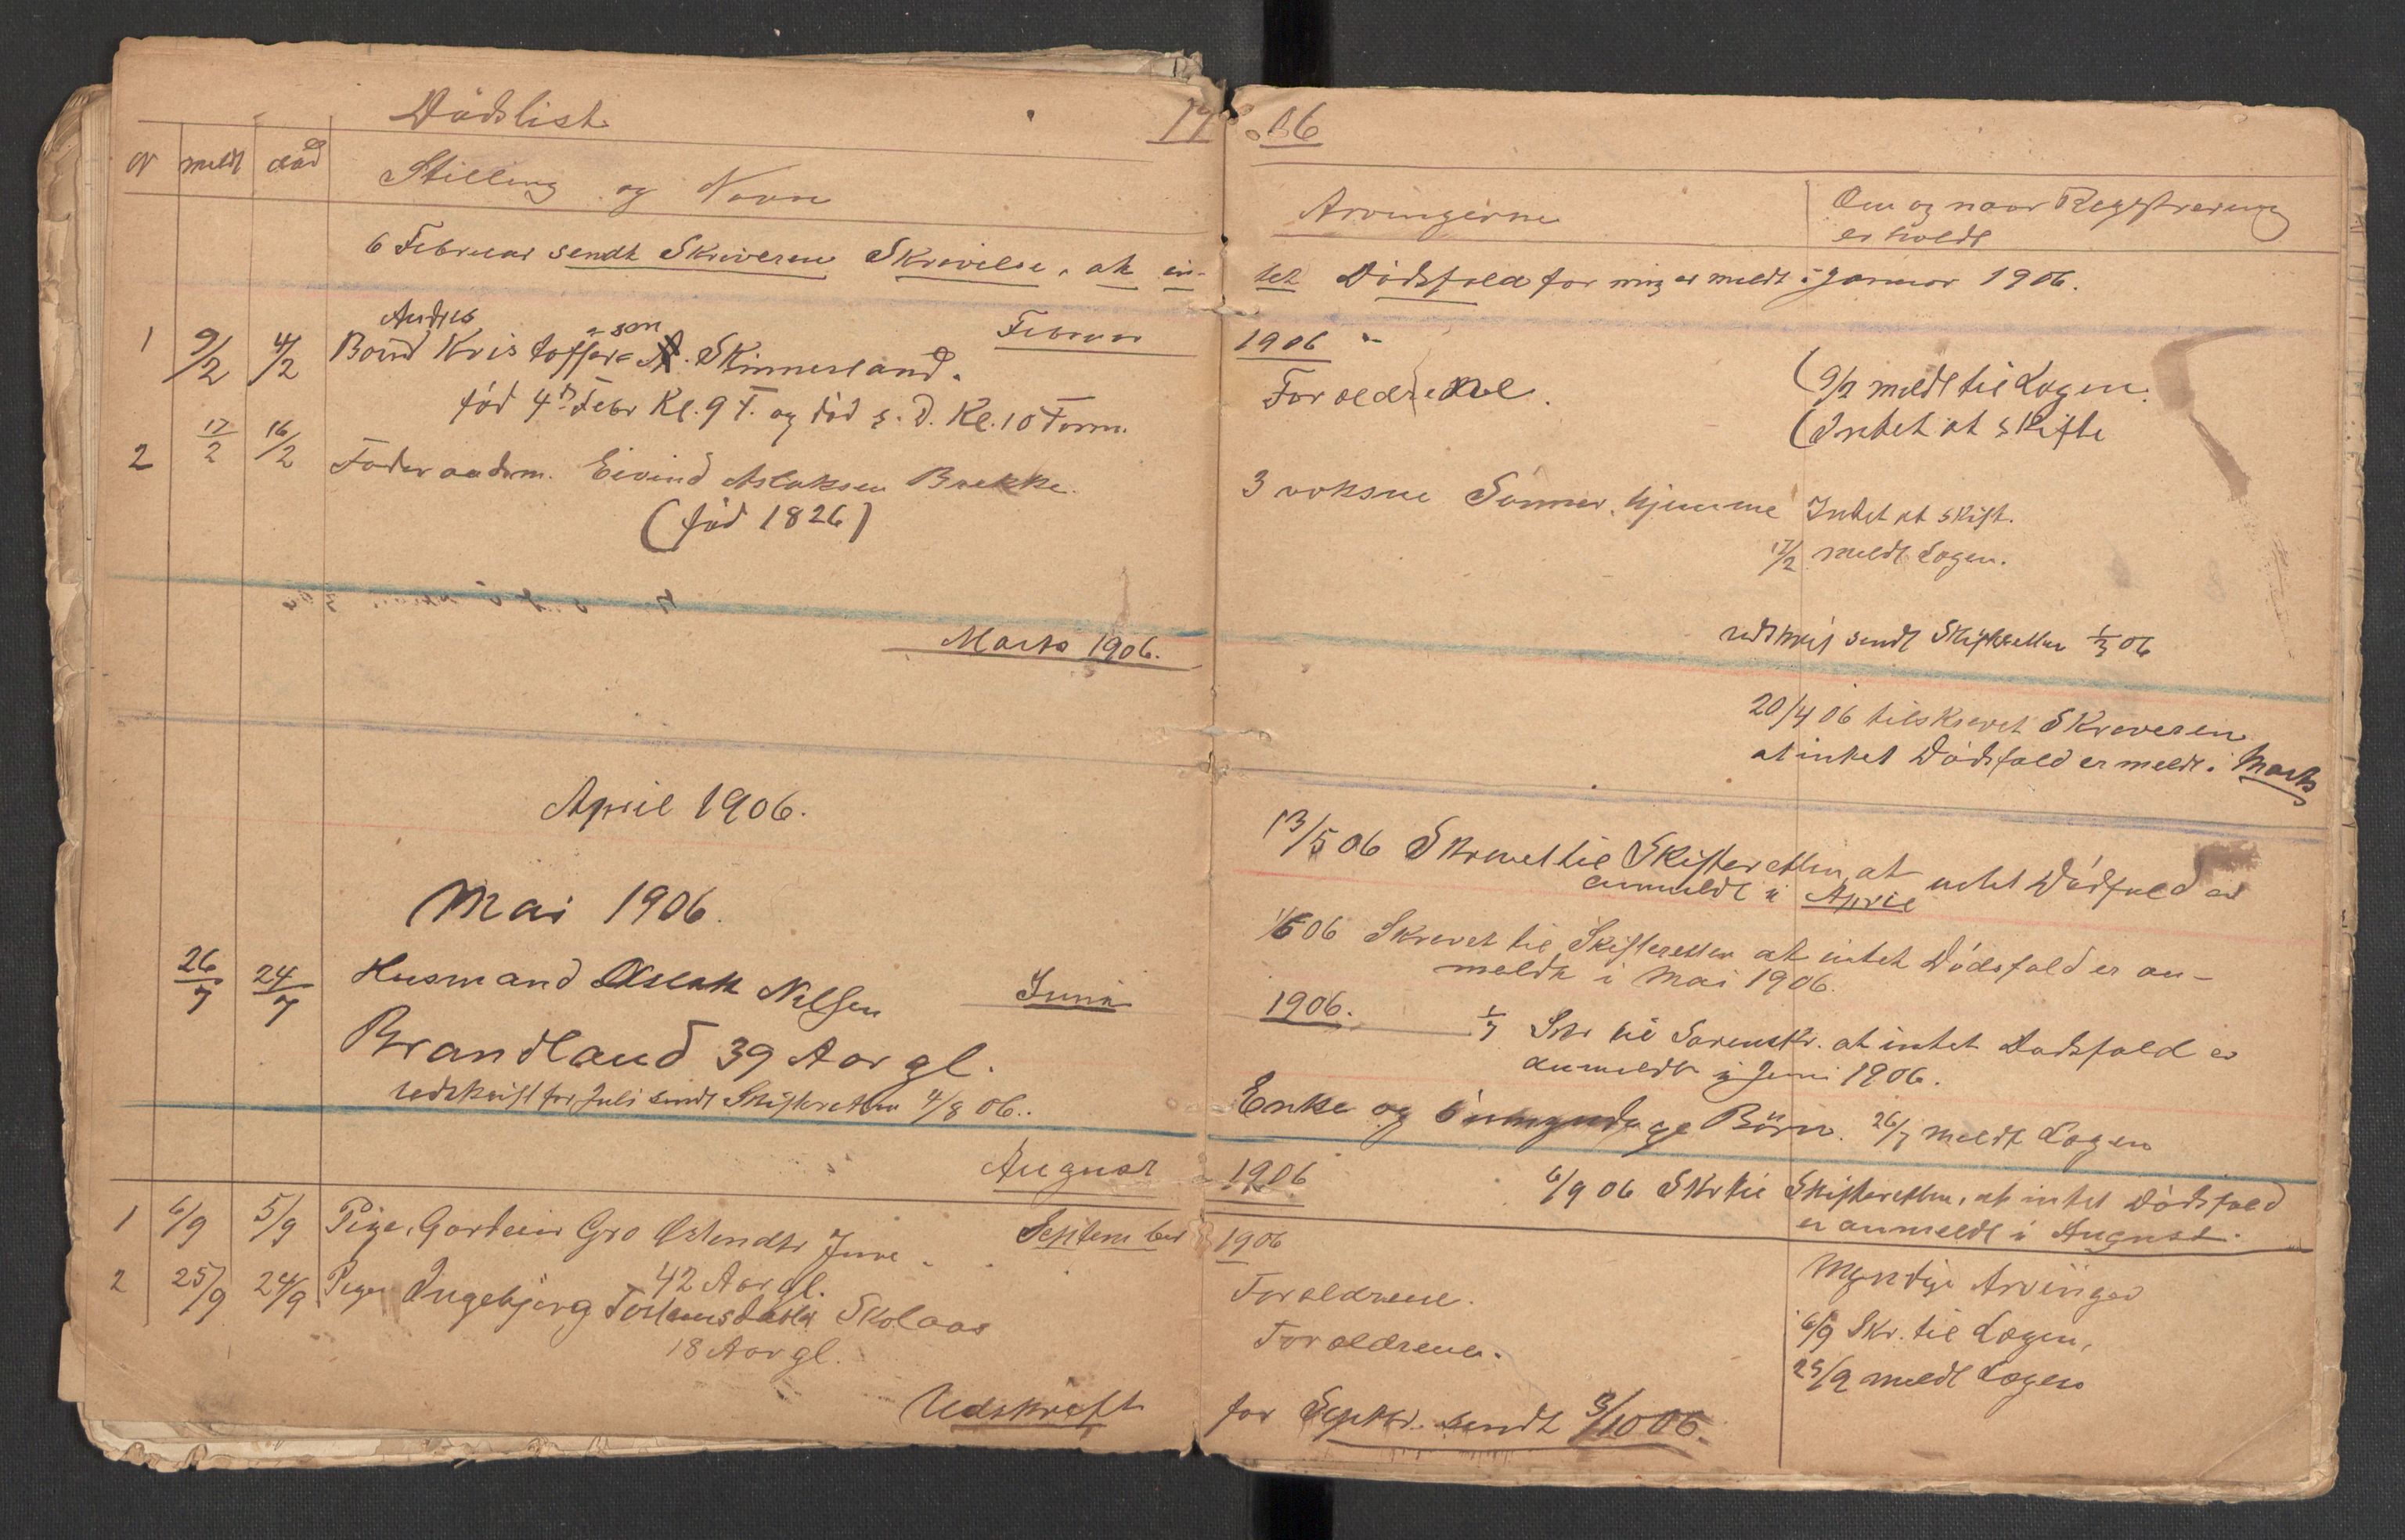 Dödslist
19 06
N meldt död Stilling og Navn
Arvingerne
Om og naar Registrering
er holdt
6 Februar sendt Skriveren Skrivelse, at in-
tet Dödsfald for mig er meldt i Januar 1906.
Februar
1906
Andres
1 9/2 4/2 Barnd Kristoffer - son A. Skinnerland.
född 4de Febr Kl. 9 F. og död s. D. Kl. 10 Form.
Forældrene.
(9/2 meldt til Lægen.
(Intet at skifte
2 17/2 16/2 Föderaadsm. Eivind Aslaksen Brekke.
(född 1826)
3 voksne Sönner, hjemme
Intet at skift.
17/2 meldt Lægen.
Udskrift sendt Skifteretten 1/3 06
Marts 1906.
20/4 06 tilskrevet Skriveren
at intet Dödsfald er meldt i Marts
April 1906.
13/5 06 Skrevet til Skifteretten at intet Dödsfald er
anmeldt i April
Mai 1906.
1/6 06 Skrevet til Skifteretten at intet Dödsfald er an-
meldt i Mai 1906.
Juni
1906.
1/7 Skr til Sorenskr. at intet Dödsfald er
anmeldt i Juni 1906.
26/7 24/7 Husmand Aslak Nilsen
Brandland 39 Aar gl.
Enke og umyndige Börn. 26/7 meldt Lægen
Udskrift for Juli sendt Skifteretten 4/8 06.
August
1906
6/9 06 Skr til Skifteretten, at intet Dödsfald
er anmeldt i August.
September
1906
1 6/9 5/9 Pige, Gro Östendtr Juve
42 Aar gl.
Forældrene.
Myndige Arvinger
6/9 Skr. til Lægen,
2 25/9 24/9 Pige Ingebjörg Skolaas
18 Aar gl.
Forældrene.
25/9 meldt Lægen
Udskrift
for Septbr. sendt 3/10 06.